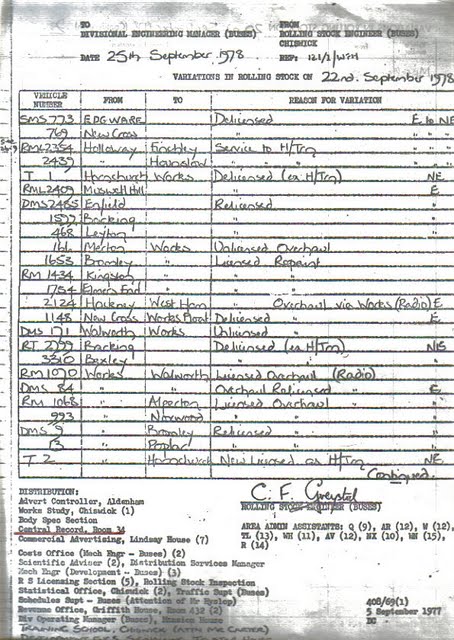 TO FROM
DIVISIONAL ENGINEERING MANAGER (BUSES) ROLLING STOCK ENGINEER (BUSES)
CHISWICK
DATE 25th September 1978 REF: 121/2/WJH
VARIATIONS IN ROLLING STOCK ON 22nd. September 1978
VEHICLE NUMBER FROM TO REASON FOR VARIATION
SMS 773 EDGWARE Delicensed E to NE
769 New Cross " "
RML2354 Holloway Finchley Service to H/Trn "
2439 " Hounslow " " "
T 1 Hornchurch Works Delicensed (ex H/Trn) NE
RML2409 Muswell Hill " E
DMS2485 Enfield Relicensed "
1597 Barking " "
468 Leyton " "
166 Merton Works Unlicensed Overhaul
1653 Bromley " Licensed Repaint
RM 1434 Kingston " "
1754 Elmers End " "
2124 Hackney West Ham Overhaul via Works (Radio) E
1148 New Cross Works Float Delicensed E
DMS 171 Walworth Works Unlicensed
RT 2799 Barking Delicensed (ex H/Trn) NIS
3510 Bexley " "
RM1070 Works Walworth Licensed Overhaul (Radio)
DMS 84 " " Overhaul Relicensed E
RM 1068 " Alperton Licensed Overhaul
993 " Norwood "
DMS 9 " Bromley Relicensed "
13 " Poplar " "
T 2 Hornchurch New Licensed as H/Trn NE
Continued.
DISTRIBUTION:
Advert Controller, Aldenham
Works Study, Chiswick (1)
Body Spec Section
Central Record, Room 34
Commercial Advertising, Lindsay House (7)
C. F.
ROLLING STOCK ENGINEER (BUSES)
AREA ADMIN ASSISTANTS: Q (9), AR (12), W (12),
TL (13), WH (11), AV (12), NX (10), MN (15),
R (14)
Costs Office (Mech Engr - Buses) (2)
Scientific Adviser (2), Distribution Services Manager
Mech Engr (Development - Buses) (3)
R S Licensing Section (5), Rolling Stock Inspection
Statistical Office, Chiswick (2), Traffic Supt (Buses)
Schedules Supt - Buses (Attention of Mr Hyslop)
Revenue Office, Griffith House, Room 412 (2)
Div Operating Manager (Buses), Mansion House
TRAINING SCHOOL, CHISWICK (ATTN MR CARTER)
408/69(1)
5 September 1977
DG